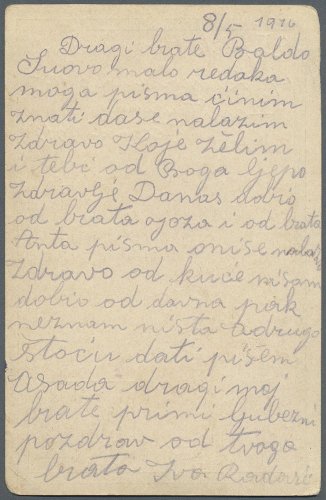 8/5 1916
Dragi brate Baldo
Suovo malo redaka
moga pisma činim
znati dase nalazim
zdravo Koje želim
i tebe od Boga ljepo
zdravlje Danas dobio
od brata ojoza i od brata
Anta pisma onise nalaze
Zdravo od kuće nisam
dobio od davna pak
neznam ništa adrugo
štoću dati pišem
Asada dragi moj
brate primi ljubezni
pozdrav od tvoga
brata Iva